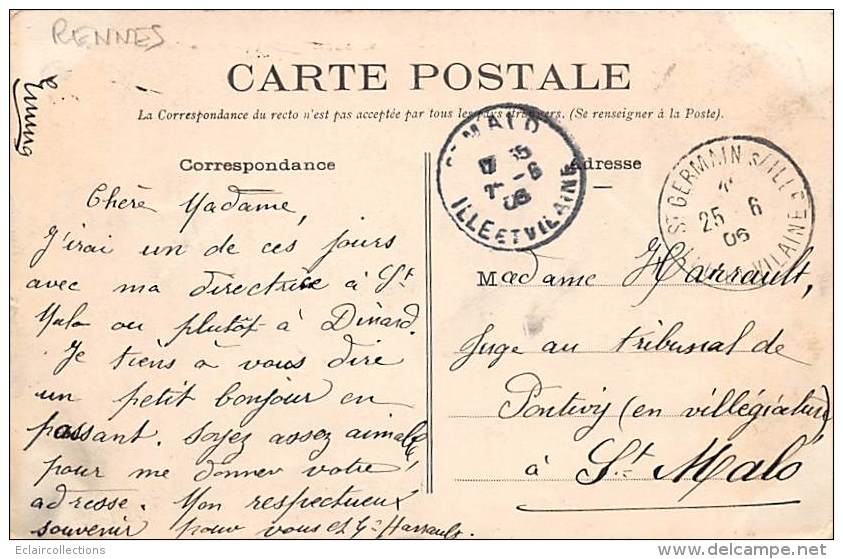 RENNES
CARTE POSTALE
La Correspondance du recto n'est pas acceptée par tous les pays étrangers. (Se renseigner à la Poste).
Correspondance
Adresse
Chère Madame,
J'irai un de ces jours
avec ma directrice à St
Malo ou plutôt à Dinard.
Je tiens à vous dire
un petit bonjour en
passant. Soyez assez aimable
pour me donner votre
adresse. Mon respectueux
souvenir pour vous et Harrault.
Madame Harrault,
Juge au tribunal de
Pontivy (en villégiature)
à St Malo
ST MALO
06
ILLE ET VILAINE
ST GERMAIN S/ILLE
25 6
06
VILAINE
Eclaircollections
http://www.delcampe.net